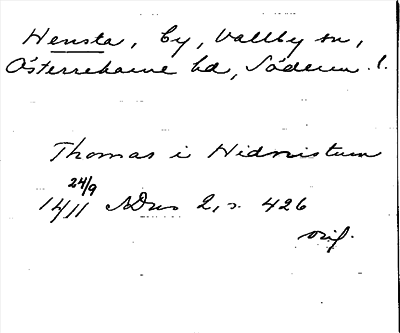 Hensta, by, Vallby sn,
Österrekarne hd, Söderm. l.
Thomas i Hidnistum
24/9
1411 SDns 2, s. 426
orig.